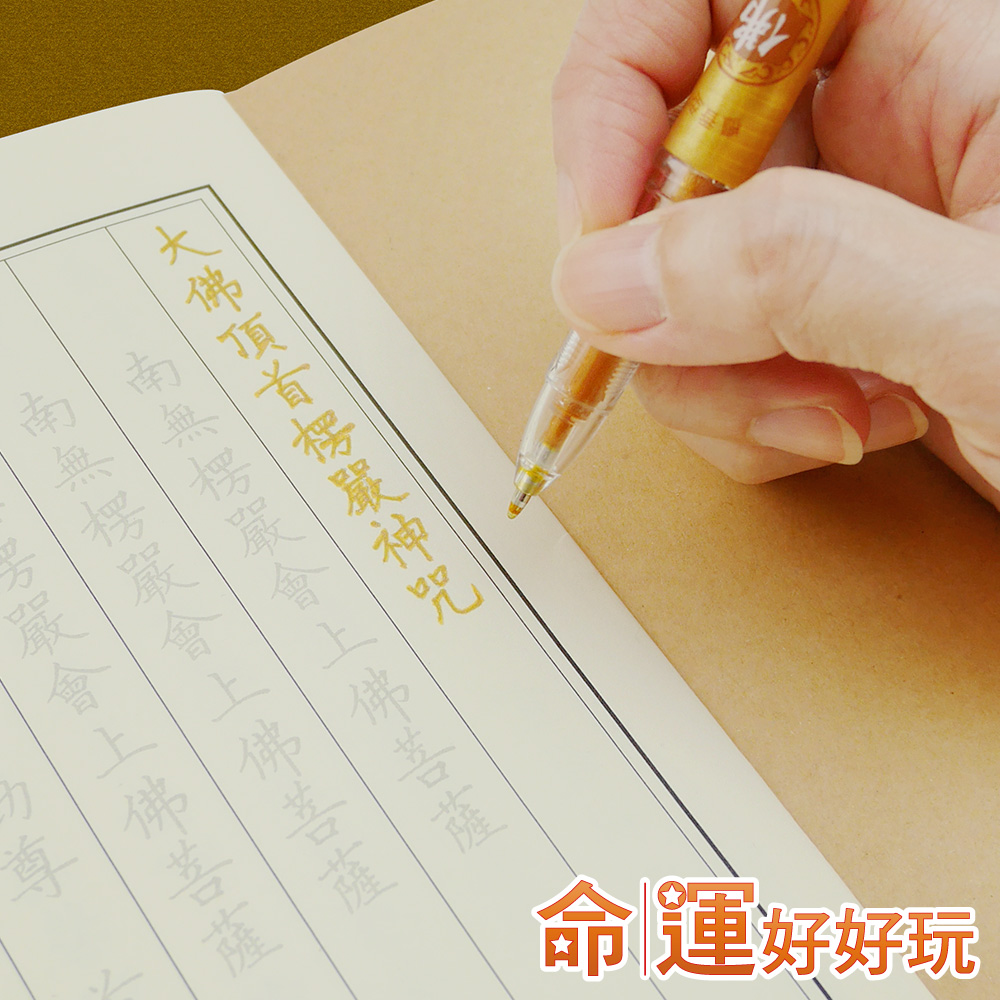 大佛頂首楞嚴神咒
南無楞嚴會上佛菩薩
南無楞嚴會上佛菩薩
南無楞嚴會上佛菩薩
佛
命運好好玩